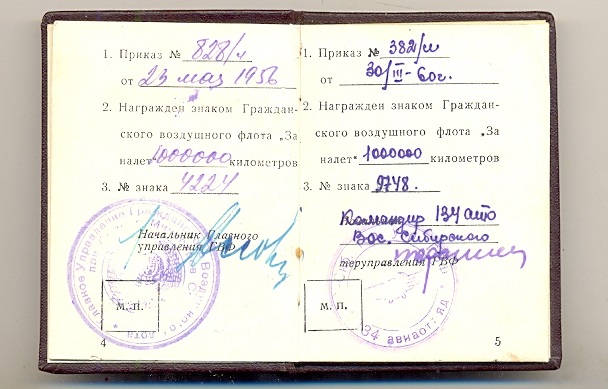 1. Приказ № 828/л
от 23 мая 1956
2. Награжден знаком Граждан-
ского воздушного флота „За
налет" 1000000 километров
3. № знака 4224
Начальник Главного
управления ГВФ
М. П.
4
1. Приказ № 382/л
от 30/III-60г.
2. Награжден знаком Граждан-
ского воздушного флота „За
налет" 1000000 километров
3. № знака 9748.
Командир 134 ато
Вос. Сибирского
теруправления ГВФ
М. П.
5